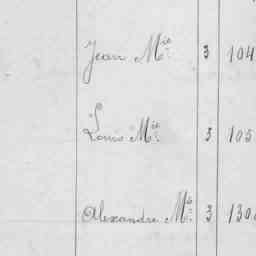 Jean Mie 3 104
Louis Mie 3 105
Alexandre Mie 3 130